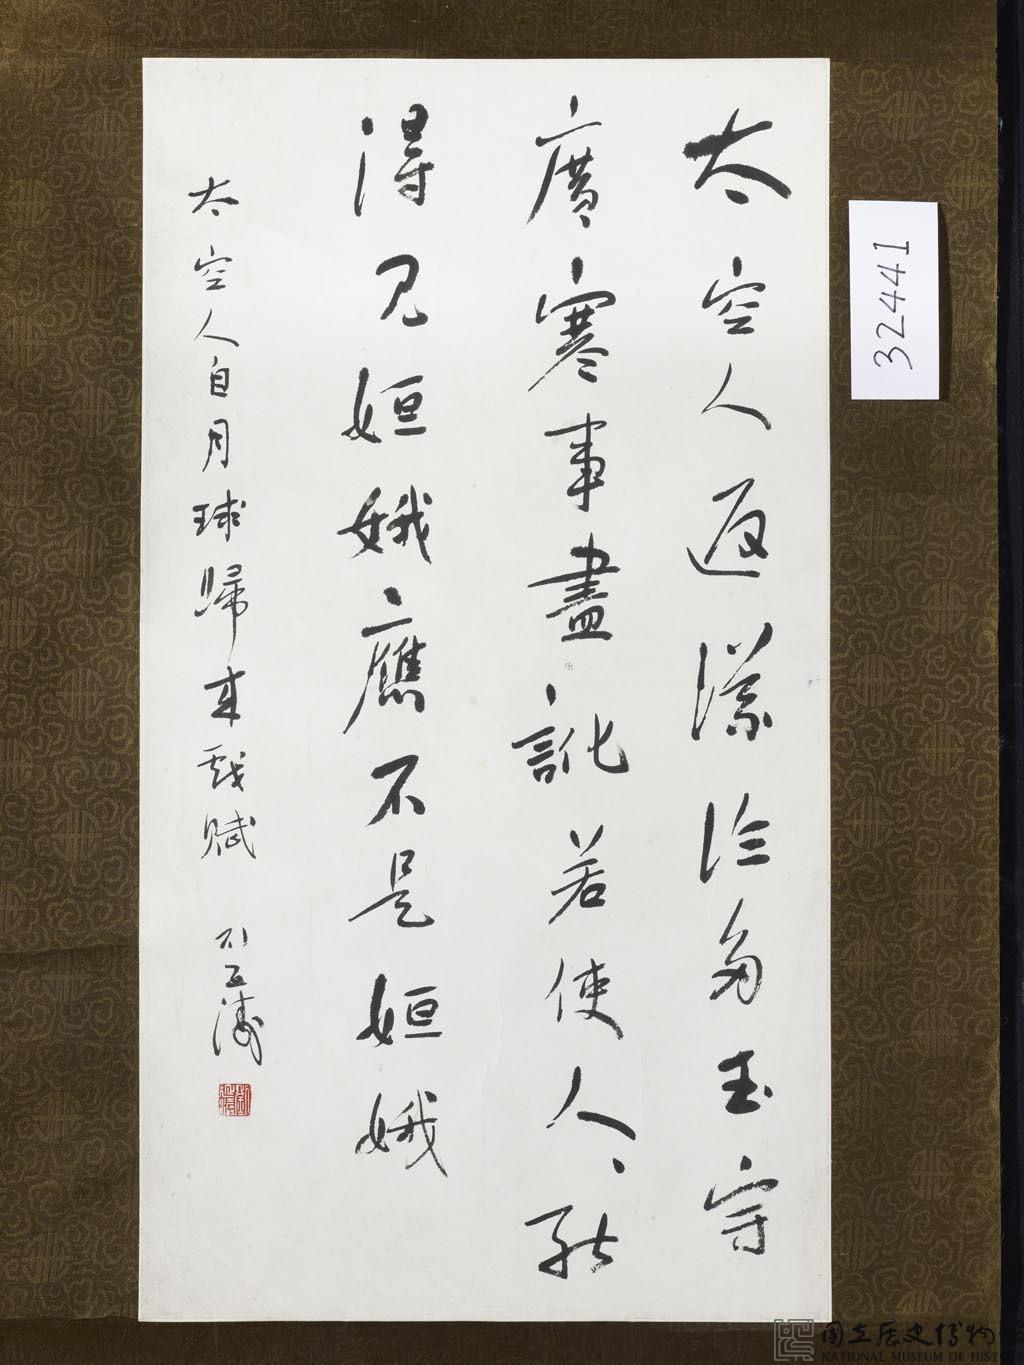 太空人返議論多玉宇
廣寒事盡訛若使人人能
得見姮娥應不是姮娥
太空人自月球歸來戲賦
劉延濤
32441
國立歷史博物
NATIONAL MUSEUM OF HIST